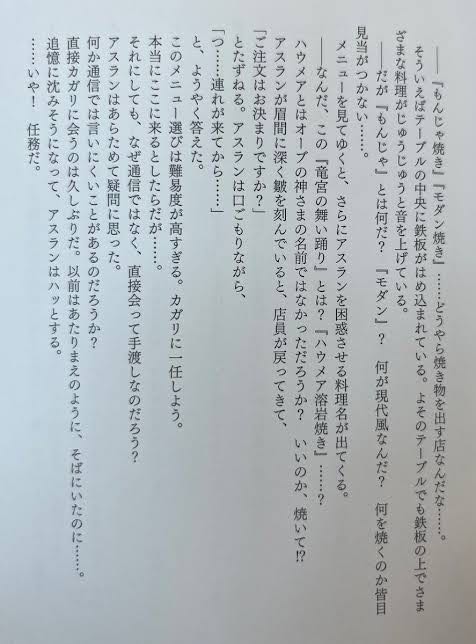 ――『もんじゃ焼き』『モダン焼き』……どうやら焼き物を出す店なんだな……。
そういえばテーブルの中央に鉄板がはめ込まれている。よそのテーブルでも鉄板の上でさま
ざまな料理がじゅうじゅうと音を上げている。
――だが『もんじゃ』とは何だ？　『モダン』？　何が現代風なんだ？　何を焼くのか皆目
見当がつかない……。
メニューを見てゆくと、さらにアスランを困惑させる料理名が出てくる。
――なんだ、この『竜宮の舞い踊り』とは？『ハウメア溶岩焼き』……？
ハウメアとはオーブの神さまの名前ではなかっただろうか？　いいのか、焼いて!?
アスランが眉間に深く皺を刻んでいると、店員が戻ってきて、
「ご注文はお決まりですか？」
とたずねる。アスランは口ごもりながら、
「つ……連れが来てから……」
と、ようやく答えた。
このメニュー選びは難易度が高すぎる。カガリに一任しよう。
本当にここに来るとしたらだが……。
それにしても、なぜ通信ではなく、直接会って手渡しなのだろう？
アスランはあらためて疑問に思った。
何か通信では言いにくいことがあるのだろうか？
直接カガリに会うのは久しぶりだ。以前はあたりまえのように、そばにいたのに……。
追憶に沈みそうになって、アスランはハッとする。
……いや！　任務だ。